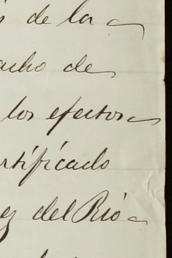 de la
acho de
los efectos
ertificado
ez del Rio